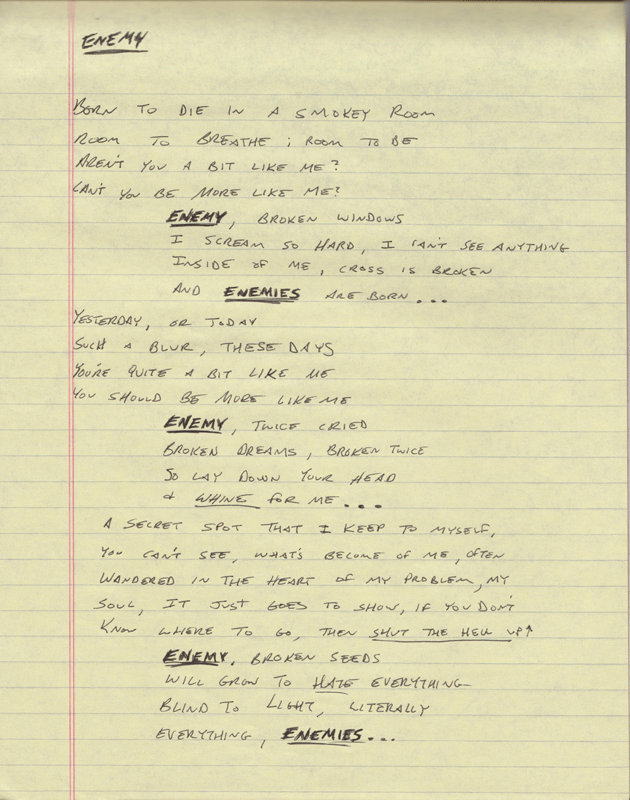 ENEMY
BORN TO DIE IN A SMOKEY ROOM
ROOM TO BREATHE ; ROOM TO BE
AREN'T YOU A BIT LIKE ME?
CAN'T YOU BE MORE LIKE ME?
ENEMY, BROKEN WINDOWS
I SCREAM SO HARD, I CAN'T SEE ANYTHING
INSIDE OF ME, CROSS IS BROKEN
AND ENEMIES ARE BORN...
YESTERDAY, OR TODAY
SUCH A BLUR, THESE DAYS
YOU'RE QUITE A BIT LIKE ME
YOU SHOULD BE MORE LIKE ME
ENEMY, TWICE CRIED
BROKEN DREAMS, BROKEN TWICE
SO LAY DOWN YOUR HEAD
& WHINE FOR ME...
A SECRET SPOT THAT I KEEP TO MYSELF,
YOU CAN'T SEE, WHAT'S BECOME OF ME, OFTEN
WANDERED IN THE HEART OF MY PROBLEM, MY
SOUL, IT JUST GOES TO SHOW, IF YOU DON'T
KNOW WHERE TO GO, THEN SHUT THE HELL UP↑
ENEMY, BROKEN SEEDS
WILL GROW TO HATE EVERYTHING—
BLIND TO LIGHT, LITERALLY
EVERYTHING, ENEMIES...